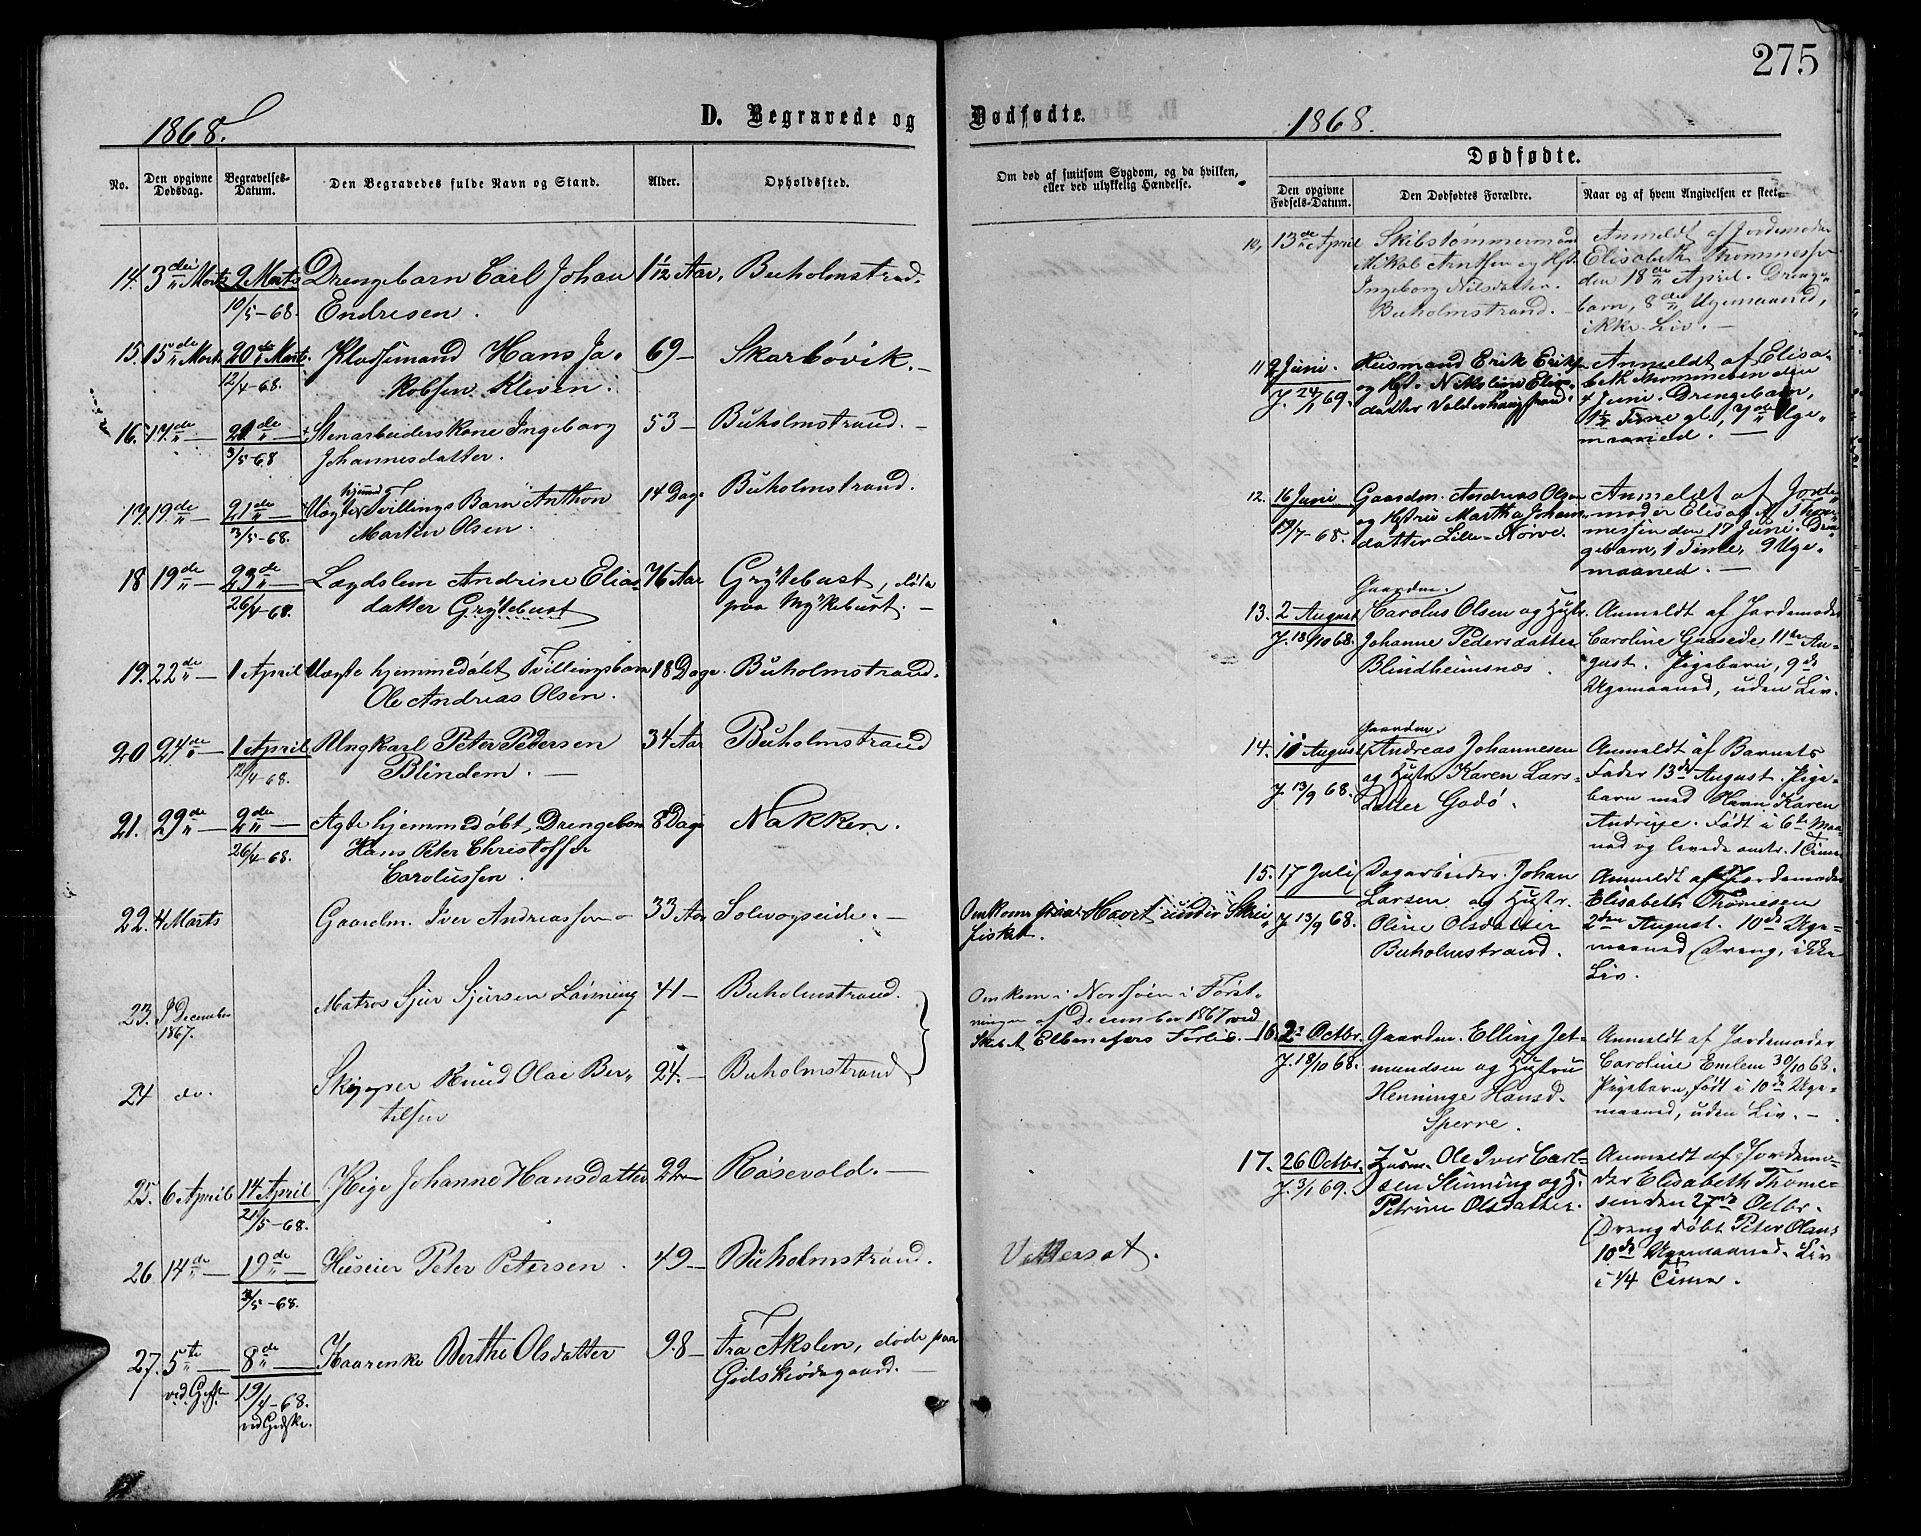 275
1868.
D. Begravede og
Dødfødte.
1868.
No.
Den opgivne Dødsdag.
Begravelses-Datum.
Den Begravedes fulde Navn og Stand.
Alder.
Opholdssted.
Om død af smitsom Sygdom, og da hvilken,
eller ved ulykkelig Hændelse.
Dødfødte.
Den opgivne Fødsels-Datum.
Den Dødfødtes Forældre.
Naar og af hvem Angivelsen er skeet.
14. 3die Marts 9 Marts Drengebarn Carl Johan 1 1/12 Aar, Buholmstrand.
10/5-68. Endresen.
15. 15de Marts 20de Marts. Hans Ja- 69- Skarbövik.-
12/4-68. kobsen Kliven.
16. 17de - 21de - Stenarbeiderskone Ingeborg 53- Buholmstrand.-
3/5-68 Johannesdatter.
17. 19de - 21de - Uægte hjemmed. Tvillings Barn Anthon 14 Dage Buholmstrand.
3/5-68. Martin Olsen.
18 19de - 23de - Lægdslem Andrine Elias- 76 Aar Grytebust, döde
26/4-68. datter Grytebust paa Myklebust.-
19. 22de - 1 April Uægte hjemmedöbt Tvillingsbarn 18 Dage. Buholmstrand.
Ole Andreas Olsen.
20 24de - 1 April Ungkarl Peter Pedersen 34 Aar Buholmstrand
12/4-68. Blindem. -
21. 29de - 2de - Ægte hjemmedöbt, Drengebarn 8 Dage Nakken.
26/4-68. Hans Peter Christoffer
Carolussen.
22. 4 Marts Gaardm. Iver Andreassen 33 Aar Solevogseide.- Omkom paa Havet under Skrei-
fisket.
23. December 1867. Matros Sjur Sjursen 41- Buholmstrand. Omkom i Nordsöen i Først-
ningen af December 1867 ved
Skibet Forlis.
24 do. Skipper Knud Olai Ber- 24.- Buholmstrand
telsen
25. 6 April 14 April Pige Johanne Hansdatter 22- Rösevold.-
21/5-68.
26 14de - 19de - Huseier Peter Petersen. 49- Buholmstrand. Vattersot.
3/5-68.
27. 5te - 8de - Kaarenke Berthe Olsdatter 98- Fra Akslen, döde paa
19/4-68. Gidskeödegaard.-
ved Gidske.
10, 13de April Skibstömmermand Anmeldt af Jordemoder
Mikal Arntsen og Hst. Elisabeth Thommessen
Ingeborg Nilsdatter. den 18de April. Drenge-
Buholmstrand.- barn, 8de Ugemaaned,
ikke Liv.-
11 2 Juni. Husmand Erik Eriks. Anmeldt af Elisa-
J. 24/1 69. og Hst. Nikoline Elias- beth Thommesen den
datter Valderhaugstrand. 4 Juni. Drengebarn,
1½ Time gl, 7de Uge-
maaned. -
12. 16 Juni Gaardm. Andreas Olsen Anmeldt af Jorde-
19/7-68. og Hstru Martha Johan- moder Elisabeth Thom-
datter Lille-Nörve. messen den 17 Juni. Dren-
gebarn, 1 Time, 9 Uge-
maaned.-
13. 2 August Gaardm. Carolus Olsen og Hustr. Anmeldt af Jordemoder
J. 18/10 68. Johanne Pedersdatter Caroline Gaaseide 11te Au-
Blindheimsnæs. gust. Pigebarn, 9de
Ugemaaned, uden Liv.
14. August Gaardm. Andreas Johannesen Anmeldt af Barnets
J. 13/9 68. og Hustr Karen Lars- Fader 13de August. Pige-
datter Godö. barn med Navn Karen
Andrine. Født i 6te Maa-
ned og levede omtr. 1 Time
15. 17 Juli Dagarbeider Johan Anmeldt af Jordemoder
J. 13/9 68. Larsen og Hustr. Elisabeth Thomesen
Oline Olsdatter 2den August. 10de Uge-
Buholmstrand. maaned Dreng, ikke
Liv.
16. 2 Octbr. Gaardm. Elling Jet- Anmeldt af Jordemoder
J. 18/10 68. mundsen og Hustru Caroline Emlem 30/10 68.
Henninge Hansd. Pigebarn, født i 10de Uge-
Sperre. maaned, uden Liv.-
17. 26 Octbr. Husm. Ole Iver Carl- Anmeldt af Jordemo-
J. 3/1 69. sen Slinning og H. der Elisabeth Thome-
Petrine Olsdatter. sen den 27de Octbr.
Dreng döbt Peter Olaus
10de Ugemaaned. Liv
i 1/4 Time.